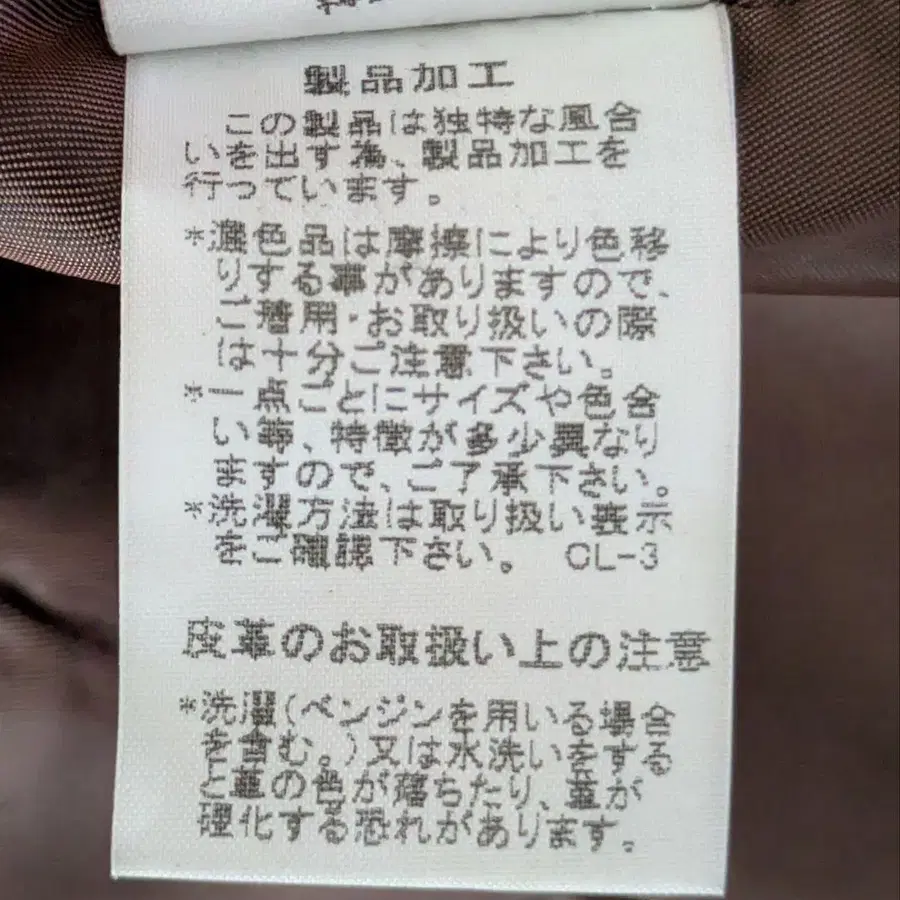 製品加工
この製品は独特な風合
いを出す為、製品加工を
行っています。
*濃色品は摩擦により色移
りする事がありますので、
ご着用・お取り扱いの際
は十分ご注意下さい。
*一点ごとにサイズや色合
い等、特徴が多少異なり
ますので、ご了承下さい。
*洗濯方法は取り扱い表示
をご確認下さい。 CL-3
皮革のお取扱い上の注意
*洗濯(ベンジンを用いる場合
を含む。)又は水洗いをする
と革の色が落ちたり、革が
硬化する恐れがあります。